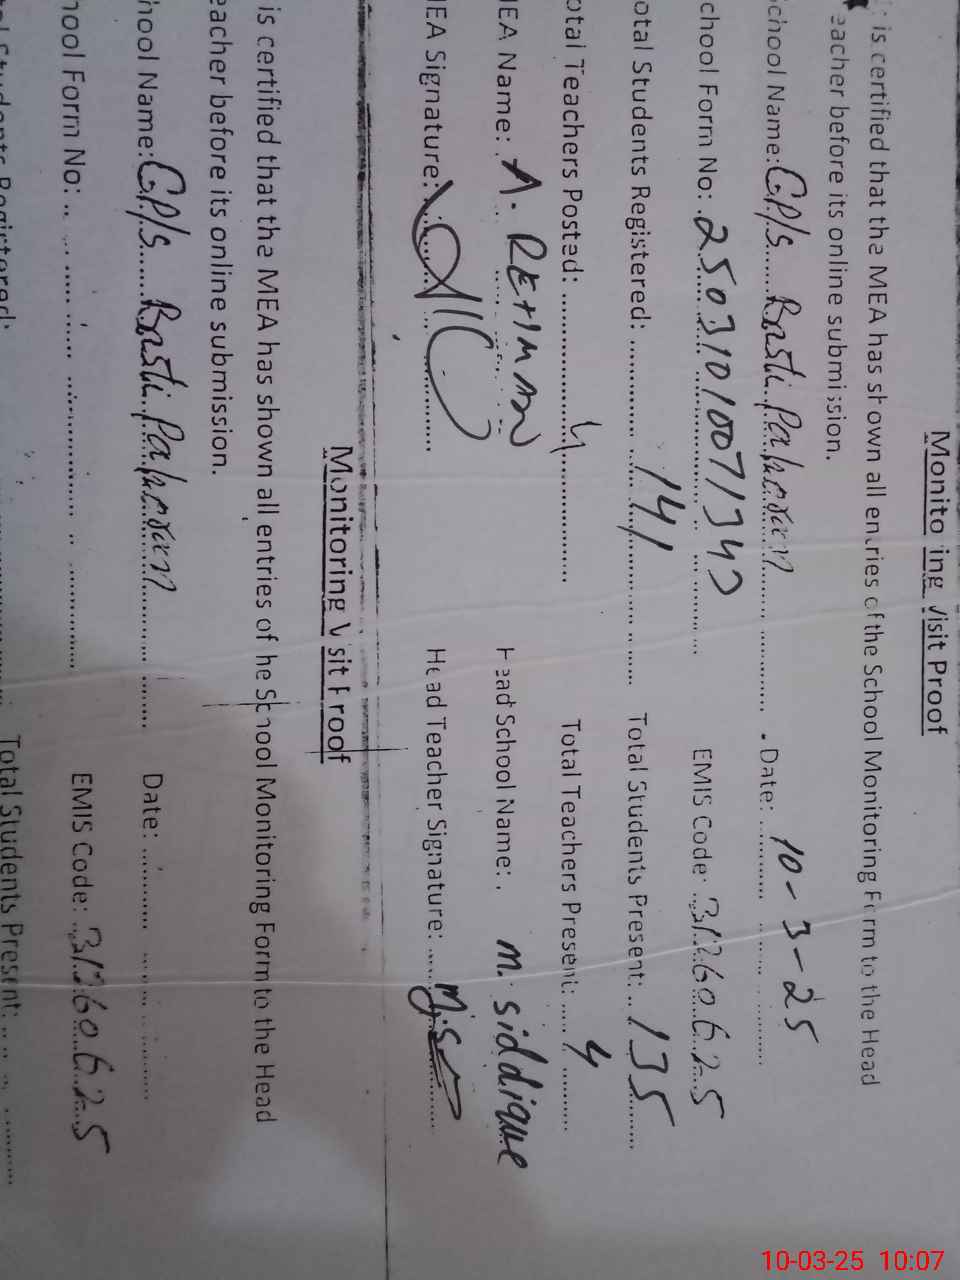 Monito ing Visit Proof
is certified that the MEA has shown all entries of the School Monitoring Form to the Head
eacher before its online submission.
chool Name: G.P/s Basti Paheran Date: 10-3-25
chool Form No: 25031010071343 EMIS Code: 31260625
otal Students Registered: 141 Total Students Present: 135
otal Teachers Posted: 4 Total Teachers Present: 4
MEA Name: A. REHMAN Head School Name: M. Siddique
MEA Signature: Head Teacher Signature:
Monitoring Visit Proof
is certified that the MEA has shown all entries of he School Monitoring Form to the Head
eacher before its online submission.
hool Name: G.P/s Basti Paheran Date:
hool Form No: EMIS Code: 31260625
tal Students Registered: Total Students Present:
10-03-25 10:07